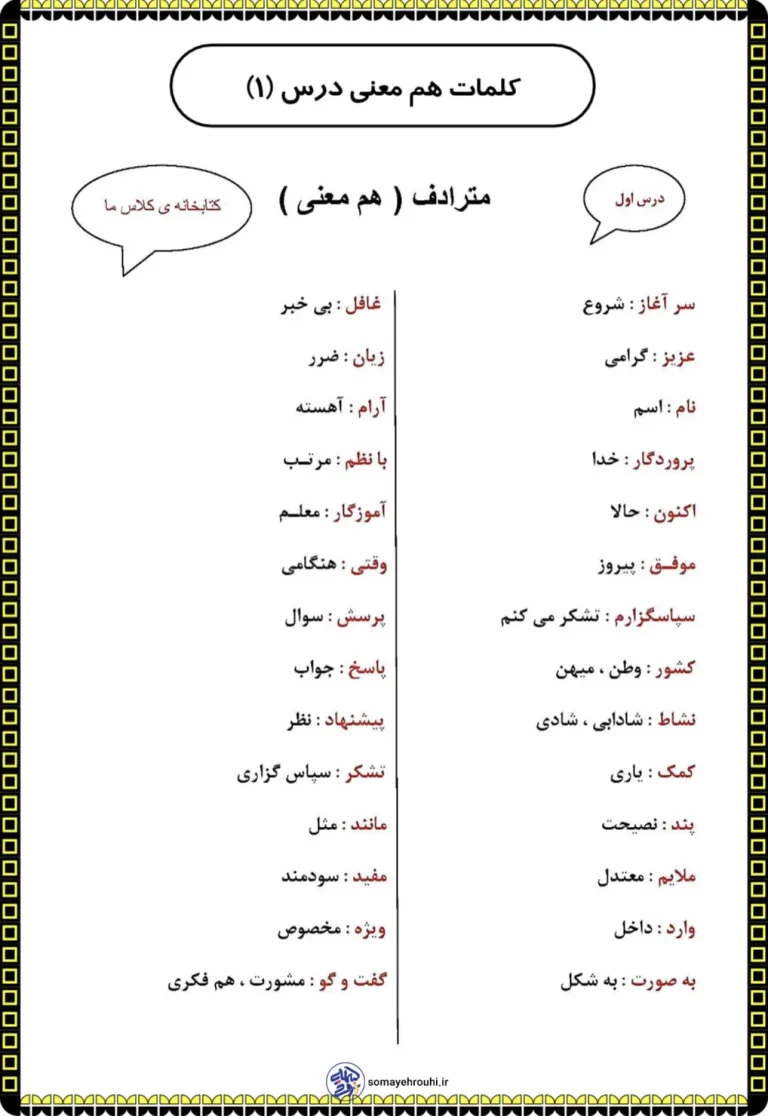 کلمات هم معنی درس (۱)
درس اول
مترادف ( هم معنی )
کتابخانه ی کلاس ما
سر آغاز : شروع
عزیز : گرامی
نام : اسم
پروردگار : خدا
اکنون : حالا
موفـق : پیروز
سپاسگزارم : تشکر می کنم
کشور : وطن ، میهن
نشاط : شادابی ، شادی
کمک : یاری
پند : نصیحت
ملایم : معتدل
وارد : داخل
به صورت : به شکل
غافل : بی خبر
زیان : ضرر
آرام : آهسته
با نظم : مرتـب
آموزگار : معلـم
وقتی : هنگامی
پرسش : سوال
پاسخ : جواب
پیشنهاد : نظر
تشکر : سپاس گزاری
مانند : مثل
مفید : سودمند
ویژه : مخصوص
گفت و گو : مشورت ، هم فکری
somayehrouhi.ir